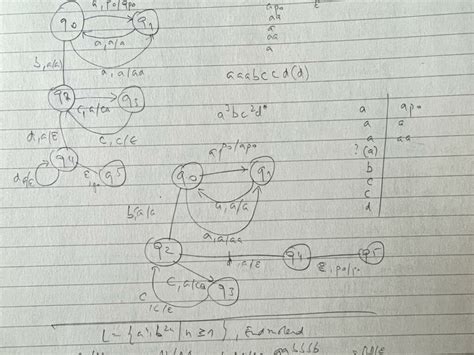 a, p0/ap0
q0 q1
a, a/a
a, a/aa
b, a/a
q2 c, a/ca q3
c, c/ε
d, a/ε
q4 q5
ap0
aa
a
aa
a
aaabccd(d)
a³bc²d⁰
a p0/ap0
q0 q1
a, a/a
a, a/aa
b, a/a
q2 d, a/ε q4 ε, p0/p0 q5
c, a/ca q3
c, c/ε
a ap0
a a
a aa
? (a)
b
c
c
d
L = {aⁿb²ⁿ | n ≥ 1}, Endzustand